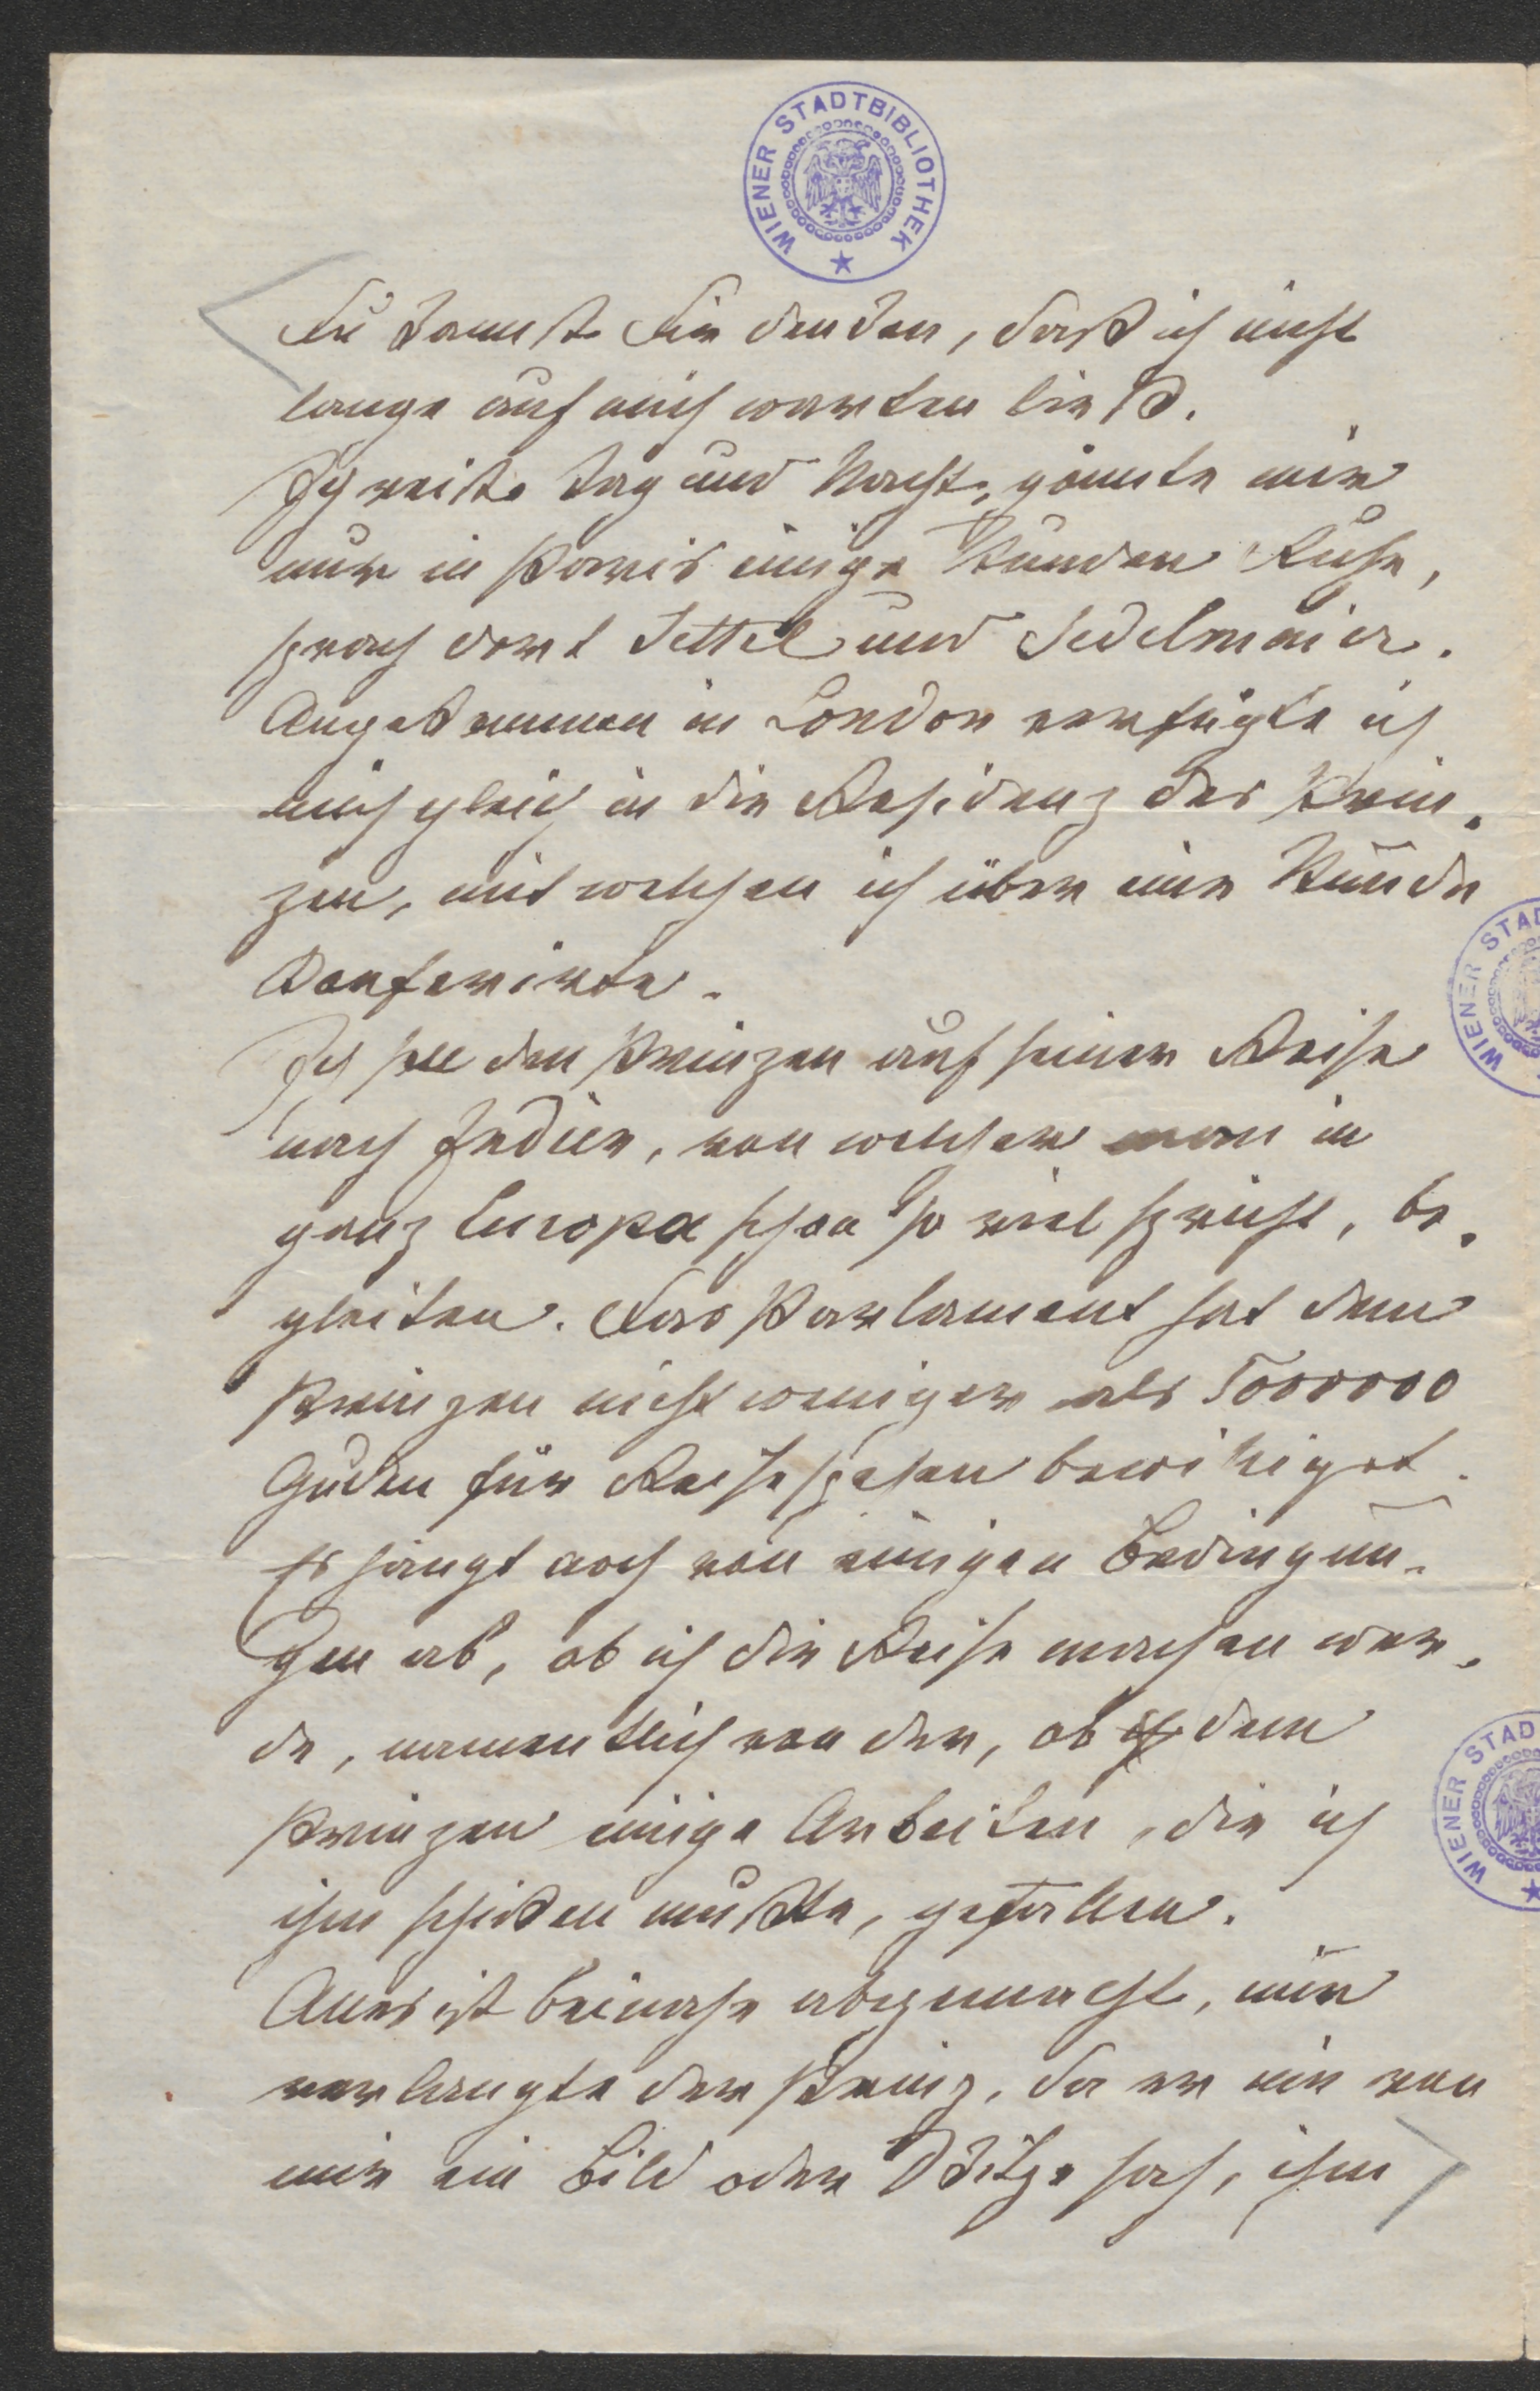 WIENER STADTBIBLIOTHEK
Du kannst Dir denken, daß ich nicht
lange auf mich warten ließ.
Ich reiste Tag und Nacht, gönnte mir
nur in Paris einige Stunden Ruhe,
sprach dort Jettel und Sedelmaier.
Angekommen in London verfügte ich
mich gleich in die Residenz des Prin-
zen, mit welchen ich über eine Stunde
konferirte.
Ich soll den Prinzen auf seiner Reise
nach Indien, von welcher man in
ganz Europa schon so viel spricht, be-
gleiten. Das Parlament hat dem
Prinzen nicht weniger als 5000000
Gulden für Reisespesen bewilliget.
Es hängt noch von einigen Bedingun-
gen ab, ob ich die Reise machen wer-
de, namentlich von der, ob ich dem
Prinzen einige Arbeiten, die ich
ihm schicken mußte, gefallen.
Alles ist beinahe abgemacht, nur
verlangte der Prinz, da er nie von
mir ein Bild oder Skitze sah, ihm
WIENER STAD
WIENER STAD